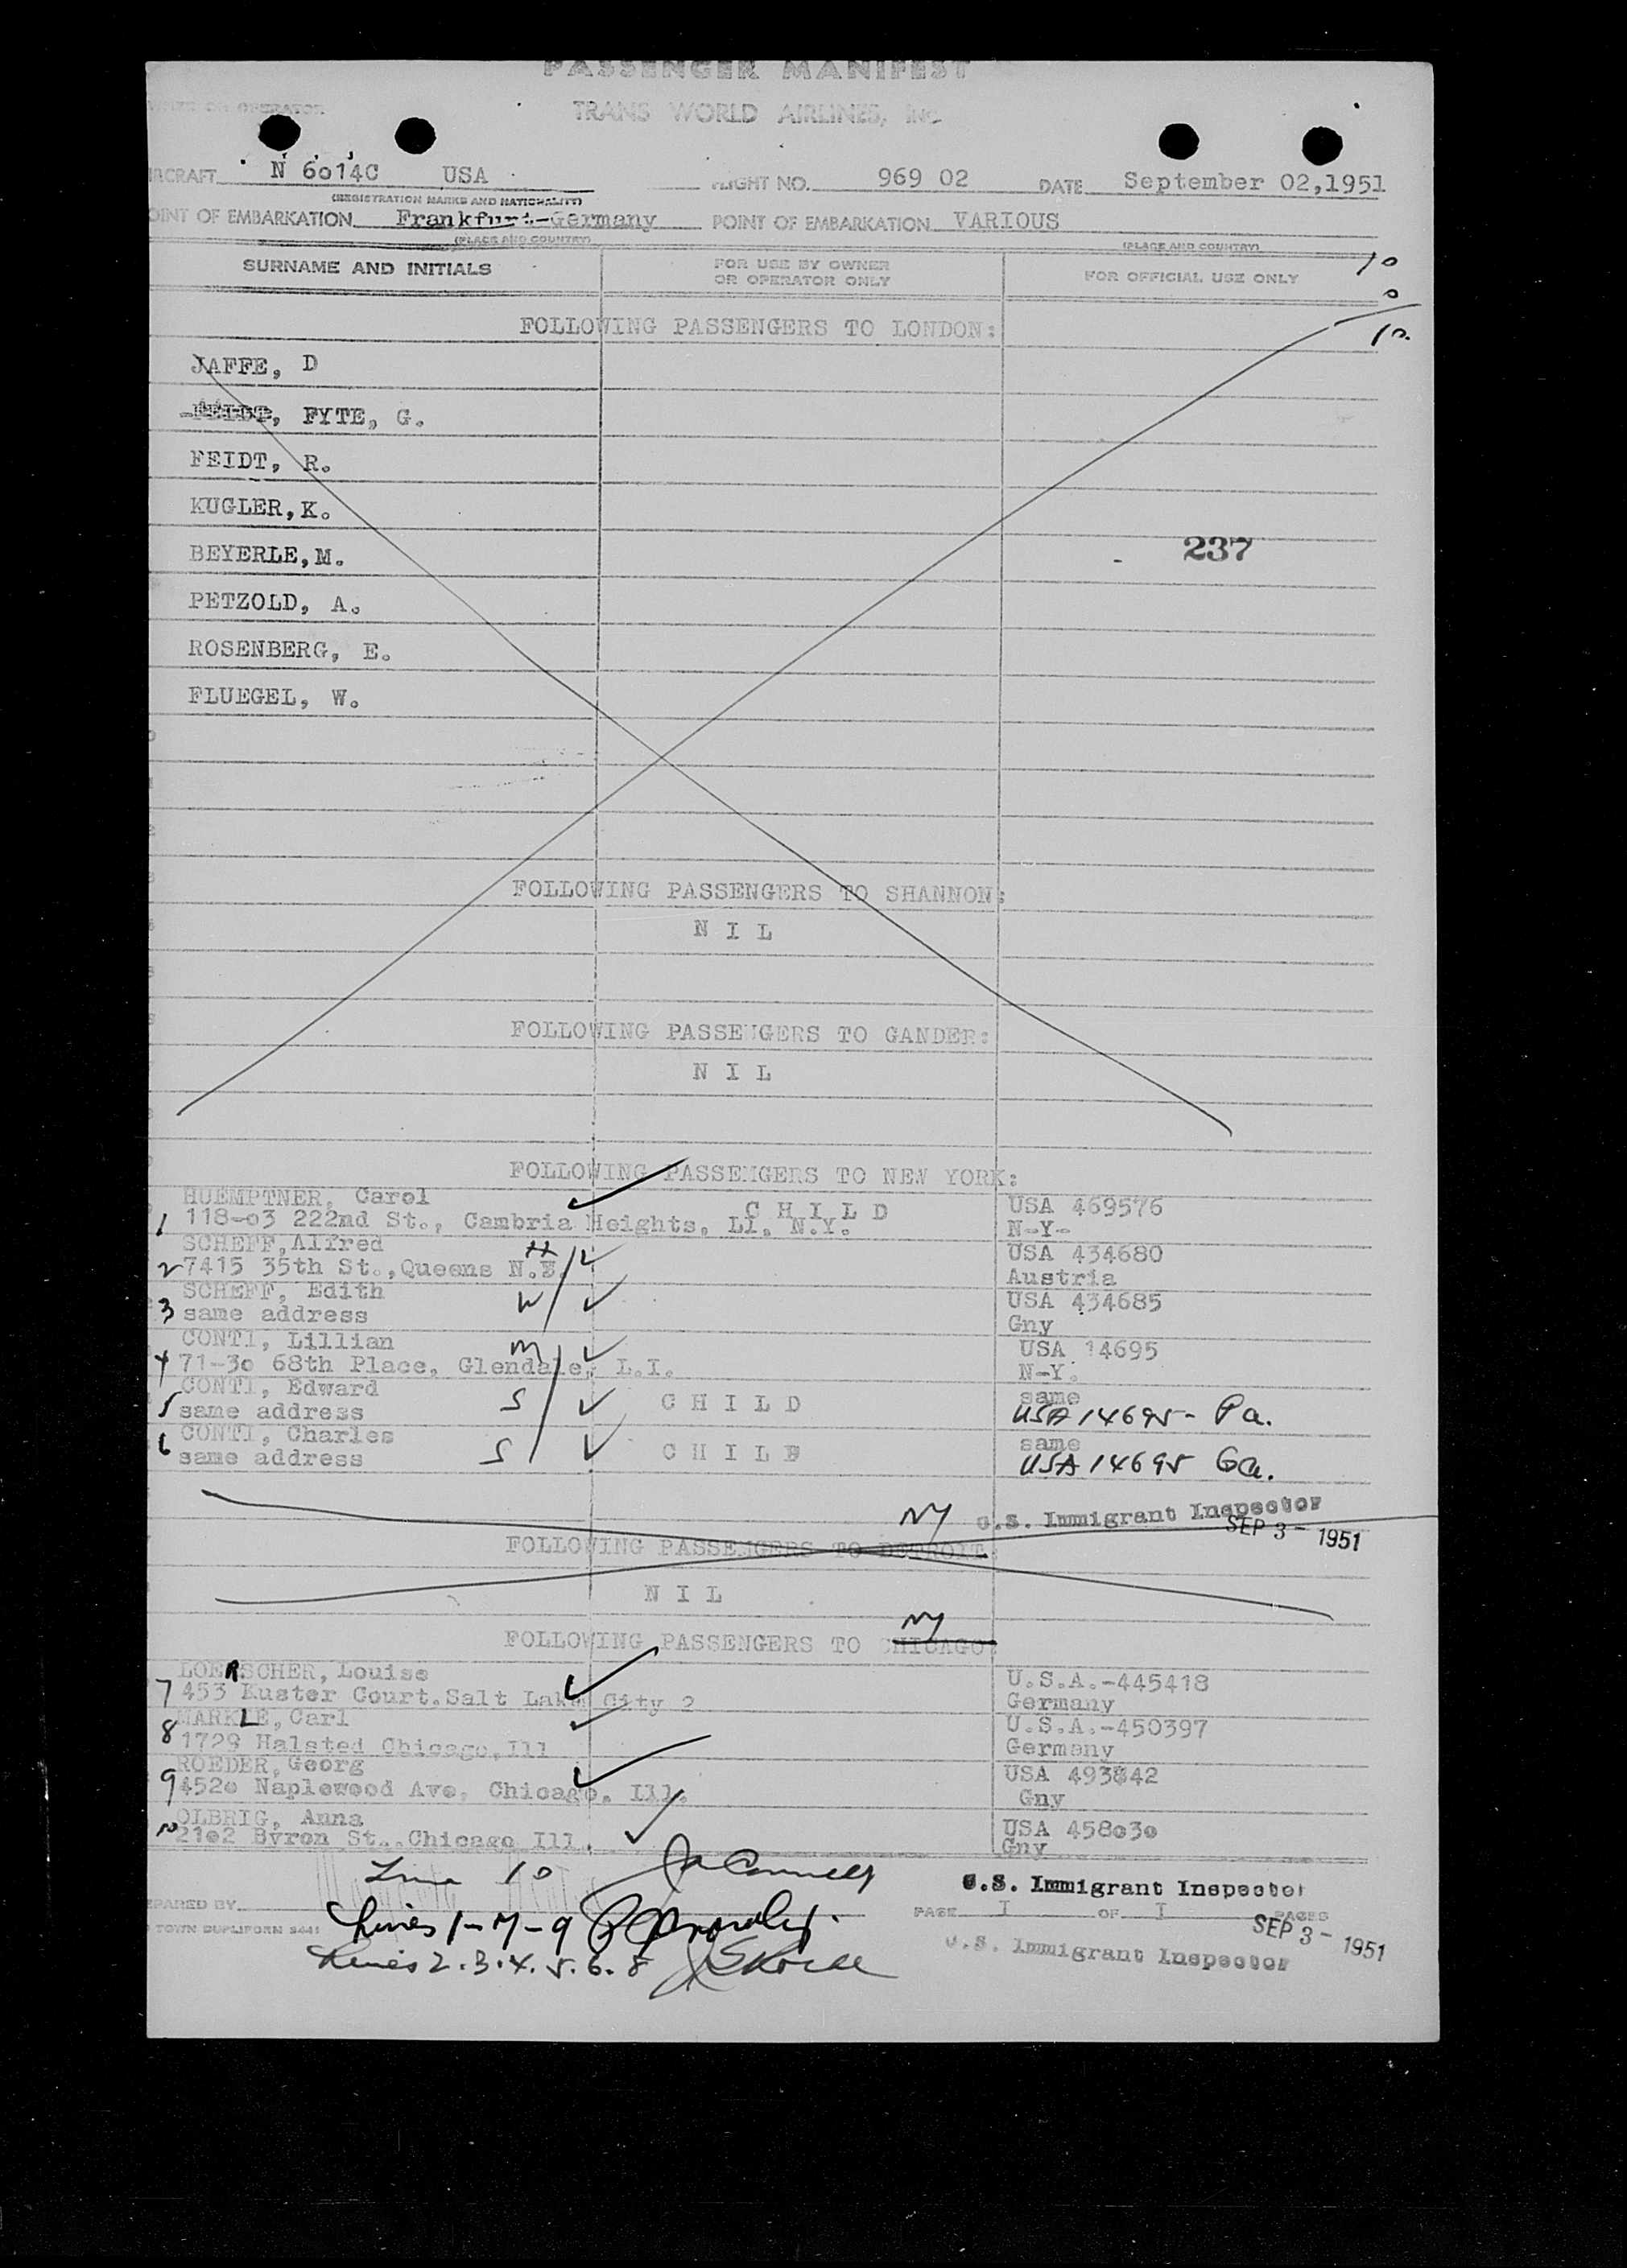 PASSENGER MANIFEST
OWNER OR OPERATOR TRANS WORLD AIRLINES, INC
AIRCRAFT N 6014C USA FLIGHT NO. 969 02 DATE September 02,1951
(REGISTRATION MARKS AND NATIONALITY)
POINT OF EMBARKATION Frankfurt-Germany POINT OF EMBARKATION VARIOUS
(PLACE AND COUNTRY) (PLACE AND COUNTRY)
SURNAME AND INITIALS FOR USE BY OWNER OR OPERATOR ONLY FOR OFFICIAL USE ONLY 10
0
10.
FOLLOWING PASSENGERS TO LONDON:
JAFFE, D
FYTE, G.
FEIDT, R.
KUGLER,K.
237
BEYERLE,M.
PETZOLD, A.
ROSENBERG, E.
FLUEGEL, W.
FOLLOWING PASSENGERS TO SHANNON:
N I L
FOLLOWING PASSENGERS TO GANDER:
N I L
FOLLOWING PASSENGERS TO NEW YORK:
HUEMPTNER, Carol C H I L D USA 469576
1 118-03 222nd St., Cambria Heights, LI. N.Y. N-Y-
SCHEFF,Alfred H USA 434680
2 7415 35th St.,Queens N.Y. Austria
SCHEFF, Edith W USA 434685
3 same address Gny
CONTI, Lillian M USA 14695
4 71-30 68th Place, Glendale, L.I. N-Y.
CONTI, Edward S C H I L D same
5 same address USA 14695- Pa.
CONTI, Charles S C H I L D same
6 same address USA 14695 Ga.
NY U.S. Immigrant Inspector
SEP 3 - 1951
FOLLOWING PASSENGERS TO DETROIT:
N I L
NY
FOLLOWING PASSENGERS TO CHICAGO:
LOERSCHER, Louise U.S.A.-445418
7 453 Kuster Court.Salt Lake City 2 Germany
MARKLE,Carl U.S.A.-450397
8 1729 Halsted Chicago,Ill Germany
ROEDER,Georg USA 493842
9 4520 Naplewood Ave, Chicago, Ill. Gny
OLBRIG, Anna USA 458030
10 2102 Byron St..Chicago Ill. Gny
Line 10
U.S. Immigrant Inspector
PREPARED BY PAGE I OF I PAGES
Lines 1-7-9
SEP 3 - 1951
TOWN DUPLIFORM
U.S. Immigrant Inspector
Lines 2.3.4.5.6.8